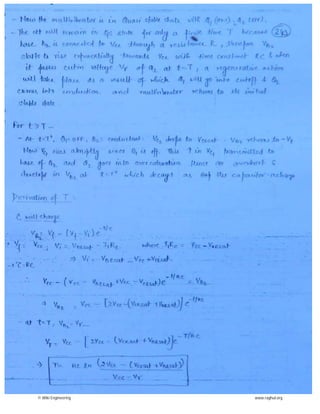 - Now the multivibrator is in Quasi stable state with Q1 (ON), Q2 (OFF).
- The ckt will remain in Q/S state for only a finite time T because
base B2 is connected to VCC through a resistance R, therefore VB2
starts to rise exponentially towards VCC with time constant RC & when
it passes cutin voltage Vγ of Q2 at t=T, a regenerative action
will take place as a result of which Q1 will go into cutoff & Q2
comes into conduction, and multivibrator returns to its initial
stable state.
For t ≥ T -
- At t=T+, Q1-OFF, Q2-conduction. VC2 drops to VCEsat
Now VC1 rises abruptly since Q1 is off. This ↑ in VC1 transmitted to
base of Q2 and Q2 goes into over saturation. Hence an overshoot δ
develops in VB2 at t=T+ which decays as the capacitor
Derivation of T :
C1 will charge
VB2 = Vf - (Vf - Vi) e^-t/τ
Vf = VCC, Vi = VBEsat - I1RC where I1RC = VCC - VCEsat
⇒ Vi = VBEsat - VCC + VCEsat
τ = RC
∴ VCC - (VCC - VBEsat + VCC - VCEsat) e^-t/RC = VB2
VB2 = VCC - [2VCC - (VCEsat + VBEsat)] e^-t/RC
- at t=T, VB2 = Vγ
Vγ = VCC - [2VCC - (VCEsat + VBEsat)] e^-T/RC
⇒ T = RC ln (2VCC - (VCEsat + VBEsat) / VCC - Vγ)
© Wiki Engineering www.raghul.org